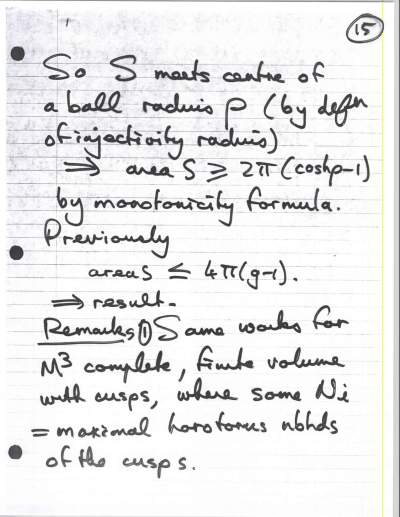 15
So S meets centre of
a ball radius ρ (by defn
of injectivity radius)
⟹ area S ⩾ 2π(coshρ-1)
by monotonicity formula.
Previously
area S ≤ 4π(g-1).
⟹ result.
Remarks ① Same works for
M³ complete, finite volume
with cusps, where some Ni
= maximal horotorus nbhds
of the cusps.